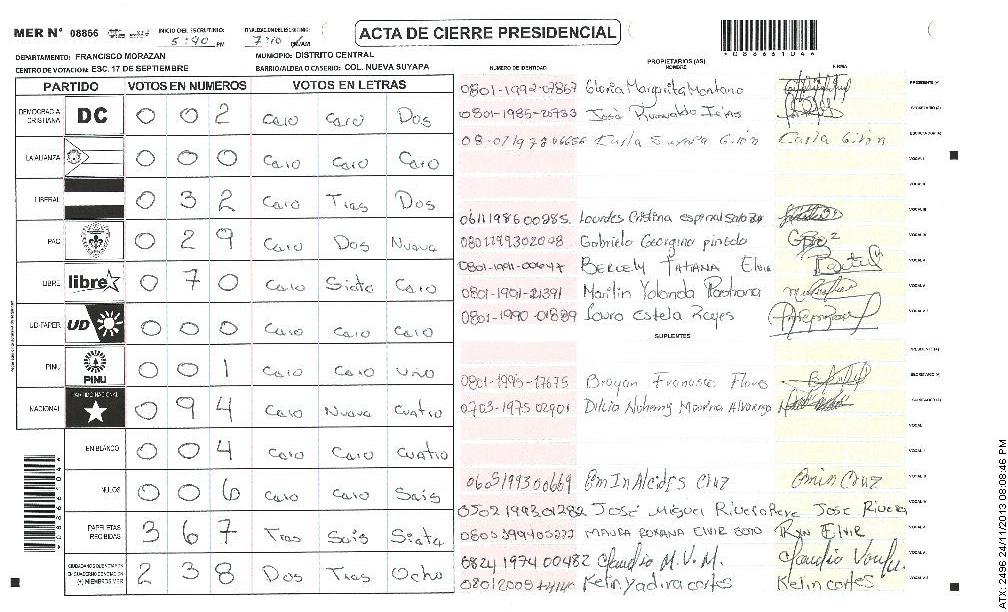 MER N° 08866 INICIO DEL ESCRUTINIO: 5:40 PM FINALIZACION DEL ESCRUTINIO: 7:10 PM/AM
ACTA DE CIERRE PRESIDENCIAL
088661046
DEPARTAMENTO: FRANCISCO MORAZAN MUNICIPIO: DISTRITO CENTRAL
CENTRO DE VOTACION: ESC. 17 DE SEPTIEMBRE BARRIO/ALDEA O CASERIO: COL. NUEVA SUYAPA
PARTIDO VOTOS EN NUMEROS VOTOS EN LETRAS
DEMOCRACIA CRISTIANA DC 0 0 2 Cero Cero Dos
LA ALIANZA 0 0 0 Cero Cero Cero
LIBERAL 0 3 2 Cero Tres Dos
PAC 0 2 9 Cero Dos Nueve
LIBRE libre 0 7 0 Cero Siete Cero
UD-FAPER UD 0 0 0 Cero Cero Cero
PINU PINU 0 0 1 Cero Cero uno
NACIONAL PARTIDO NACIONAL 0 9 4 Cero Nueve Cuatro
EN BLANCO 0 0 4 Cero Cero Cuatro
NULOS 0 0 6 Cero Cero Seis
PAPELETAS RECIBIDAS 3 6 7 Tres Seis Siete
CIUDADANOS QUE VOTARON EN CUADERNO DE VOTACION (+) MIEMBROS MER 2 3 8 Dos Tres Ocho
NUMERO DE IDENTIDAD PROPIETARIOS (AS) NOMBRE FIRMA
0801-1992-07867 Gloria Margarita Montano PRESIDENTE (A)
0801-1985-20733 José SECRETARIO (A)
Carla Girón ESCRUTADOR (A)
VOCAL I
VOCAL II
0611198600285 Lourdes Cristina espinal VOCAL III
Gabriela Georgina pineda VOCAL IV
0801-1991-00647 BERLELY TATIANA Elvir VOCAL V
0801-1901-21391 Marilin Yolanda VOCAL VI
0801-1990-01889 Laura Estela Reyes VOCAL VII
SUPLENTES
PRESIDENTE (A)
0801-1995-17675 Brayan Francisco Flores SECRETARIO (A)
0703-1975-02901 Dilcia Nohemy ESCRUTADOR (A)
VOCAL I
VOCAL II
0605199300669 Cruz Cruz VOCAL III
0502199301282 José Miguel Rivera Jose Rivera VOCAL IV
MAURA ROXANA ELVIR SOTO ELVIR VOCAL V
0824 1974 00482 Claudio M.V.M. VOCAL VI
Kelin Yadira cortes Kelin cortes VOCAL VII
ATX-2496 24/11/2013 08:08:46 PM